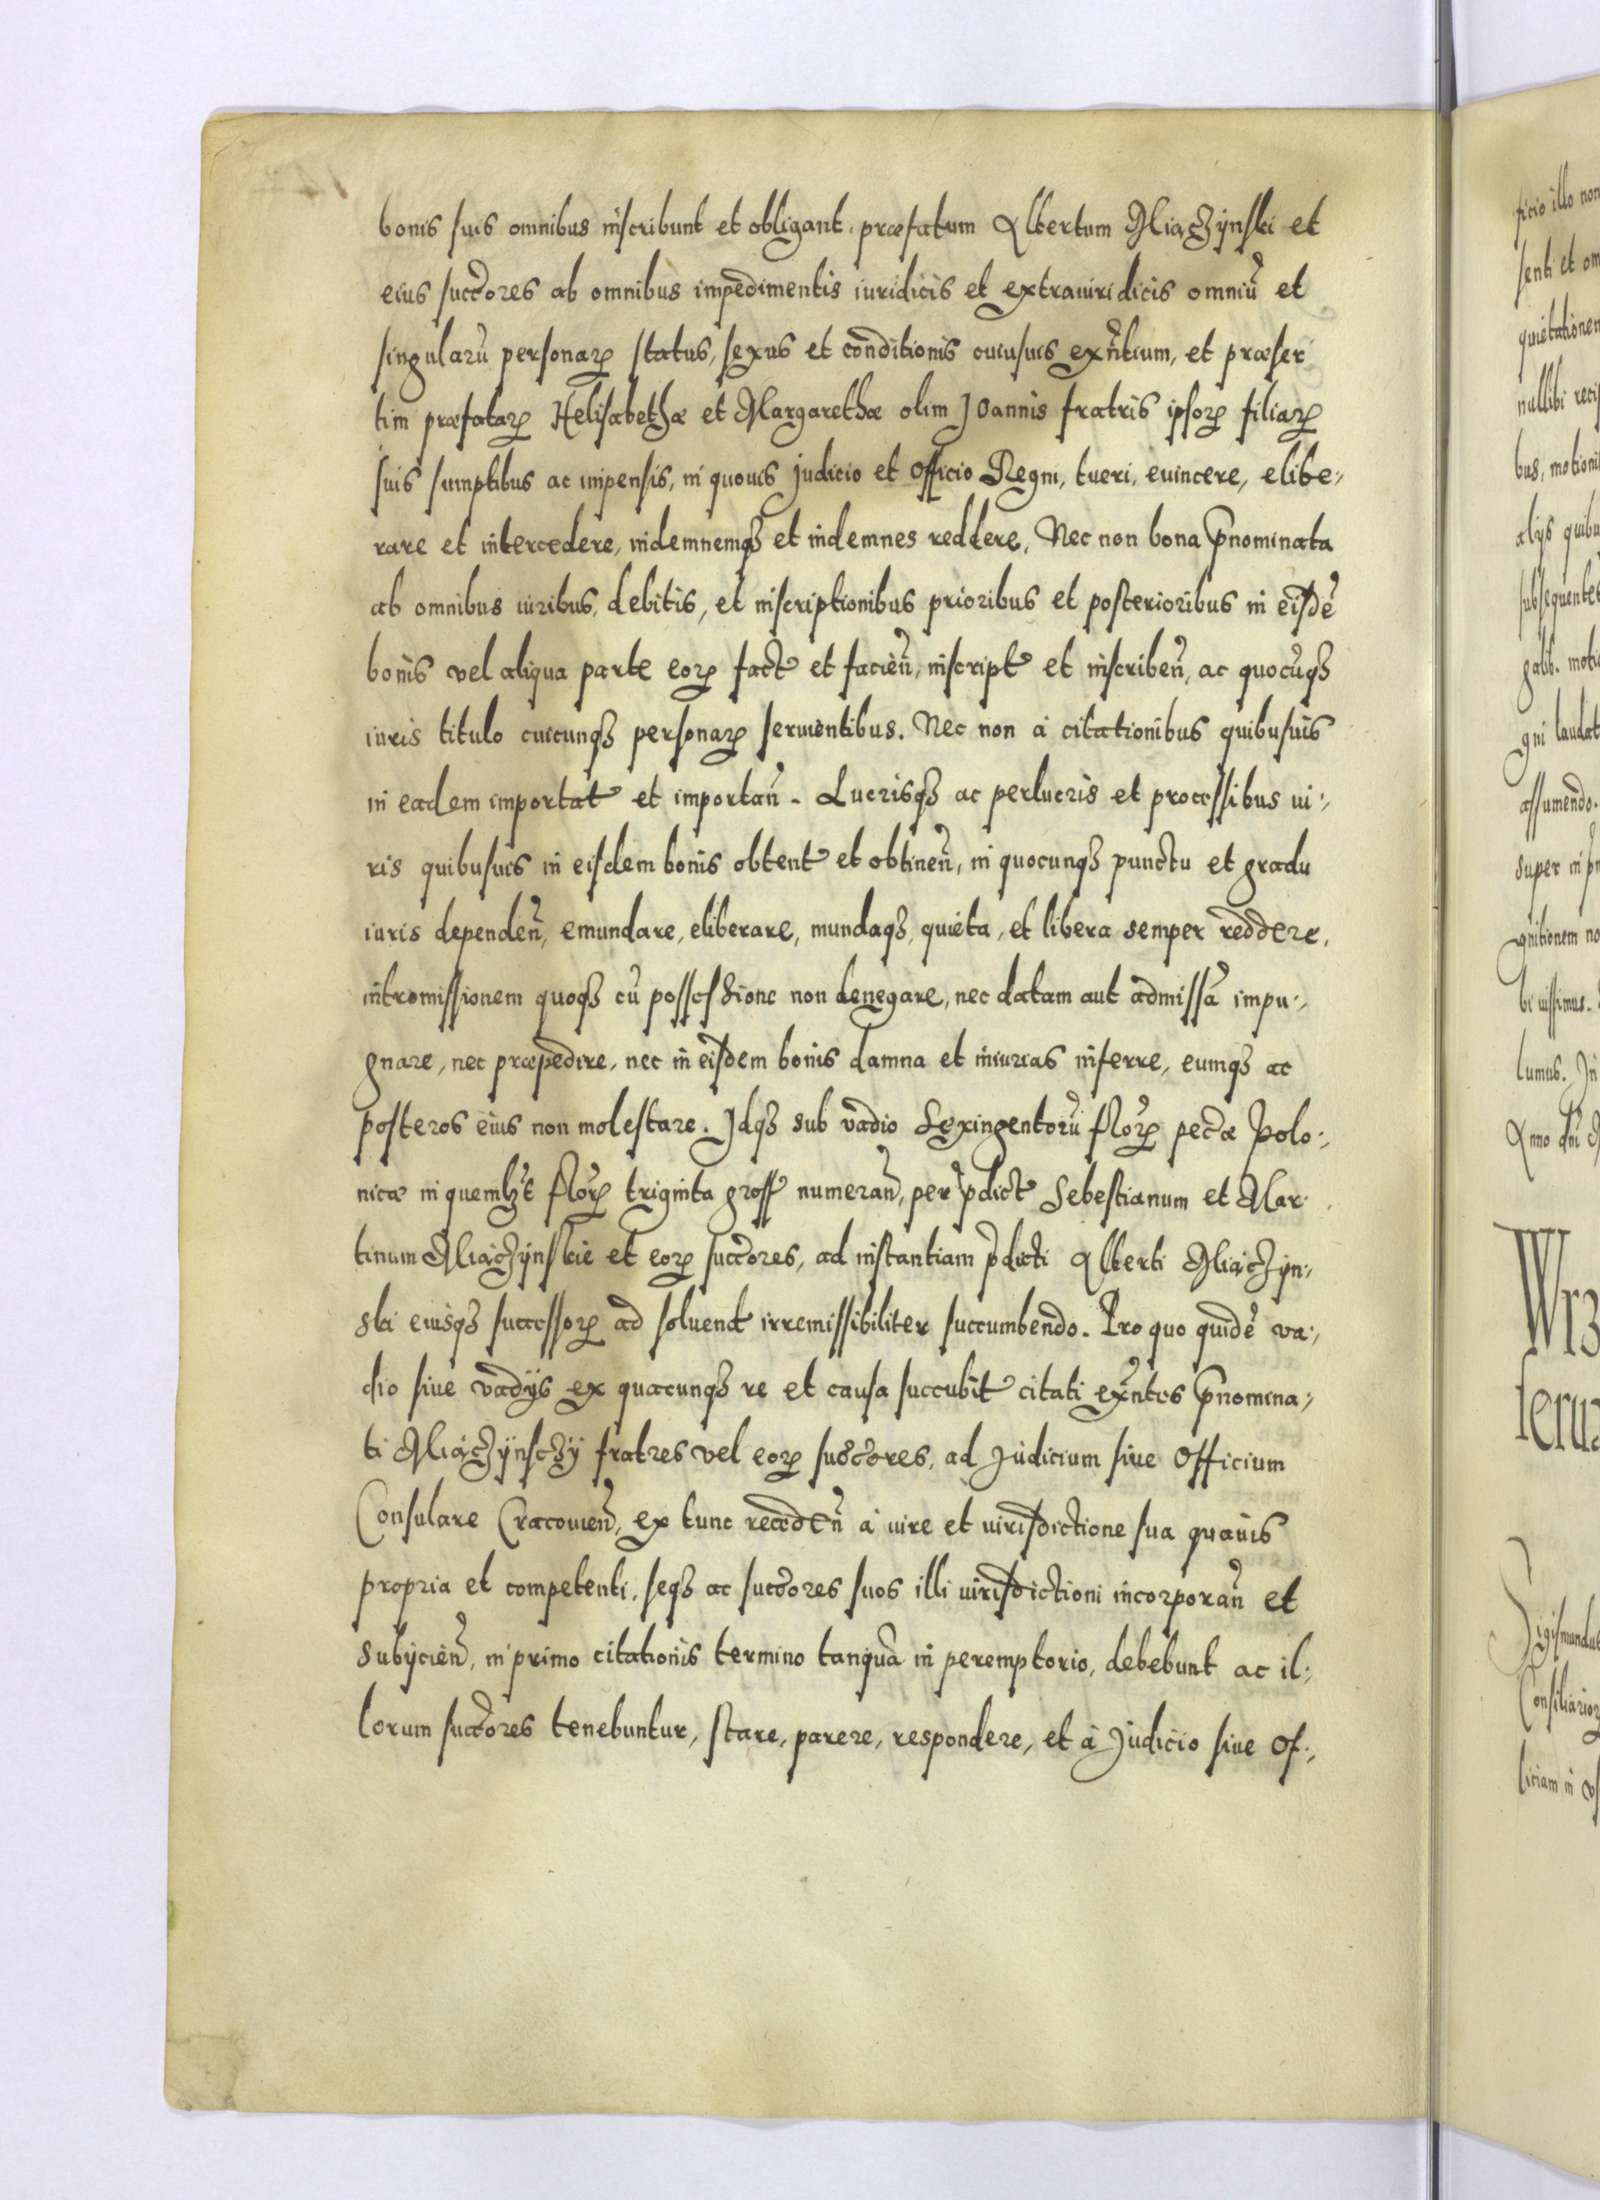 bonis suis omnibus inscribunt et obligant. præfatum Albertum Miączÿnski et
eius succ̄ores ab omnibus impedimentis iuridicis et extraiuridicis omniū et
singularū personaꝝ status, sexus et conditionis cuiusuis exn̄tium, et præser
tim præfataꝝ Helisabethæ et Margarethæ olim Joannis fratris ipsoꝝ filiaꝝ
suis sumptibus ac impensis, in quouis Judicio et Officio Regni, tueri, euincere, elibe-
rare et intercedere, indemnemqꝫ et indemnes reddere, Nec non bona p̄nominata
ab omnibus iuribus, debitis, et inscriptionibus prioribus et posterioribus in eisdē
bonis vel aliqua parte eoꝝ fact et facień, inscript et inscribeń, ac quocūqꝫ
iuris titulo cuicunqꝫ personaꝝ seruientibus. Nec non à citationibus quibusuis
in eadem importat et importań. Lucrisqꝫ ac perlucris et processibus iu-
ris quibusuis in eisdem bonis obtent et obtineń, in quocunqꝫ punctu et gradu
iuris dependeń, emundare, eliberare, mundaqꝫ, quieta, et libera semper reddere,
intromissionem quoqꝫ cū possessione non denegare, nec datam aut admissā impu-
gnare, nec præpedire, nec in eisdem bonis damna et iniurias inferre, eumqꝫ ac
posteros eius non molestare. Jdqꝫ sub vadio Sexingentorū floꝝ pecc̄æ Polo-
nicæ in quemlꝫt floꝝ triginta gross numerań, per p̄dict Sebestianum et Mar
tinum Miączÿnskie et eoꝝ succ̄ores, ad instantiam p̄dicti Alberti Miączÿn-
ski eiusqꝫ successoꝝ ad soluend irremissibiliter succumbendo. Pro quo quidē va-
dio siue vadijs ex quacunqꝫ re et causa succubit citati exn̄tes p̄nomina-
ti Miączÿnsczÿ fratres vel eoꝝ succ̄ores, ad Judicium siue Officium
Consulare Cracouień, ex tunc recedeń à iure et iurisdictione sua quauis
propria et competenti, seqꝫ ac succ̄ores suos illi iurisdictioni incorporań et
subijcień, in primo citationis termino tanquā in peremptorio, debebunt ac il-
lorum succ̄ores tenebuntur, stare, parere, respondere, et à Judicio siue Of-